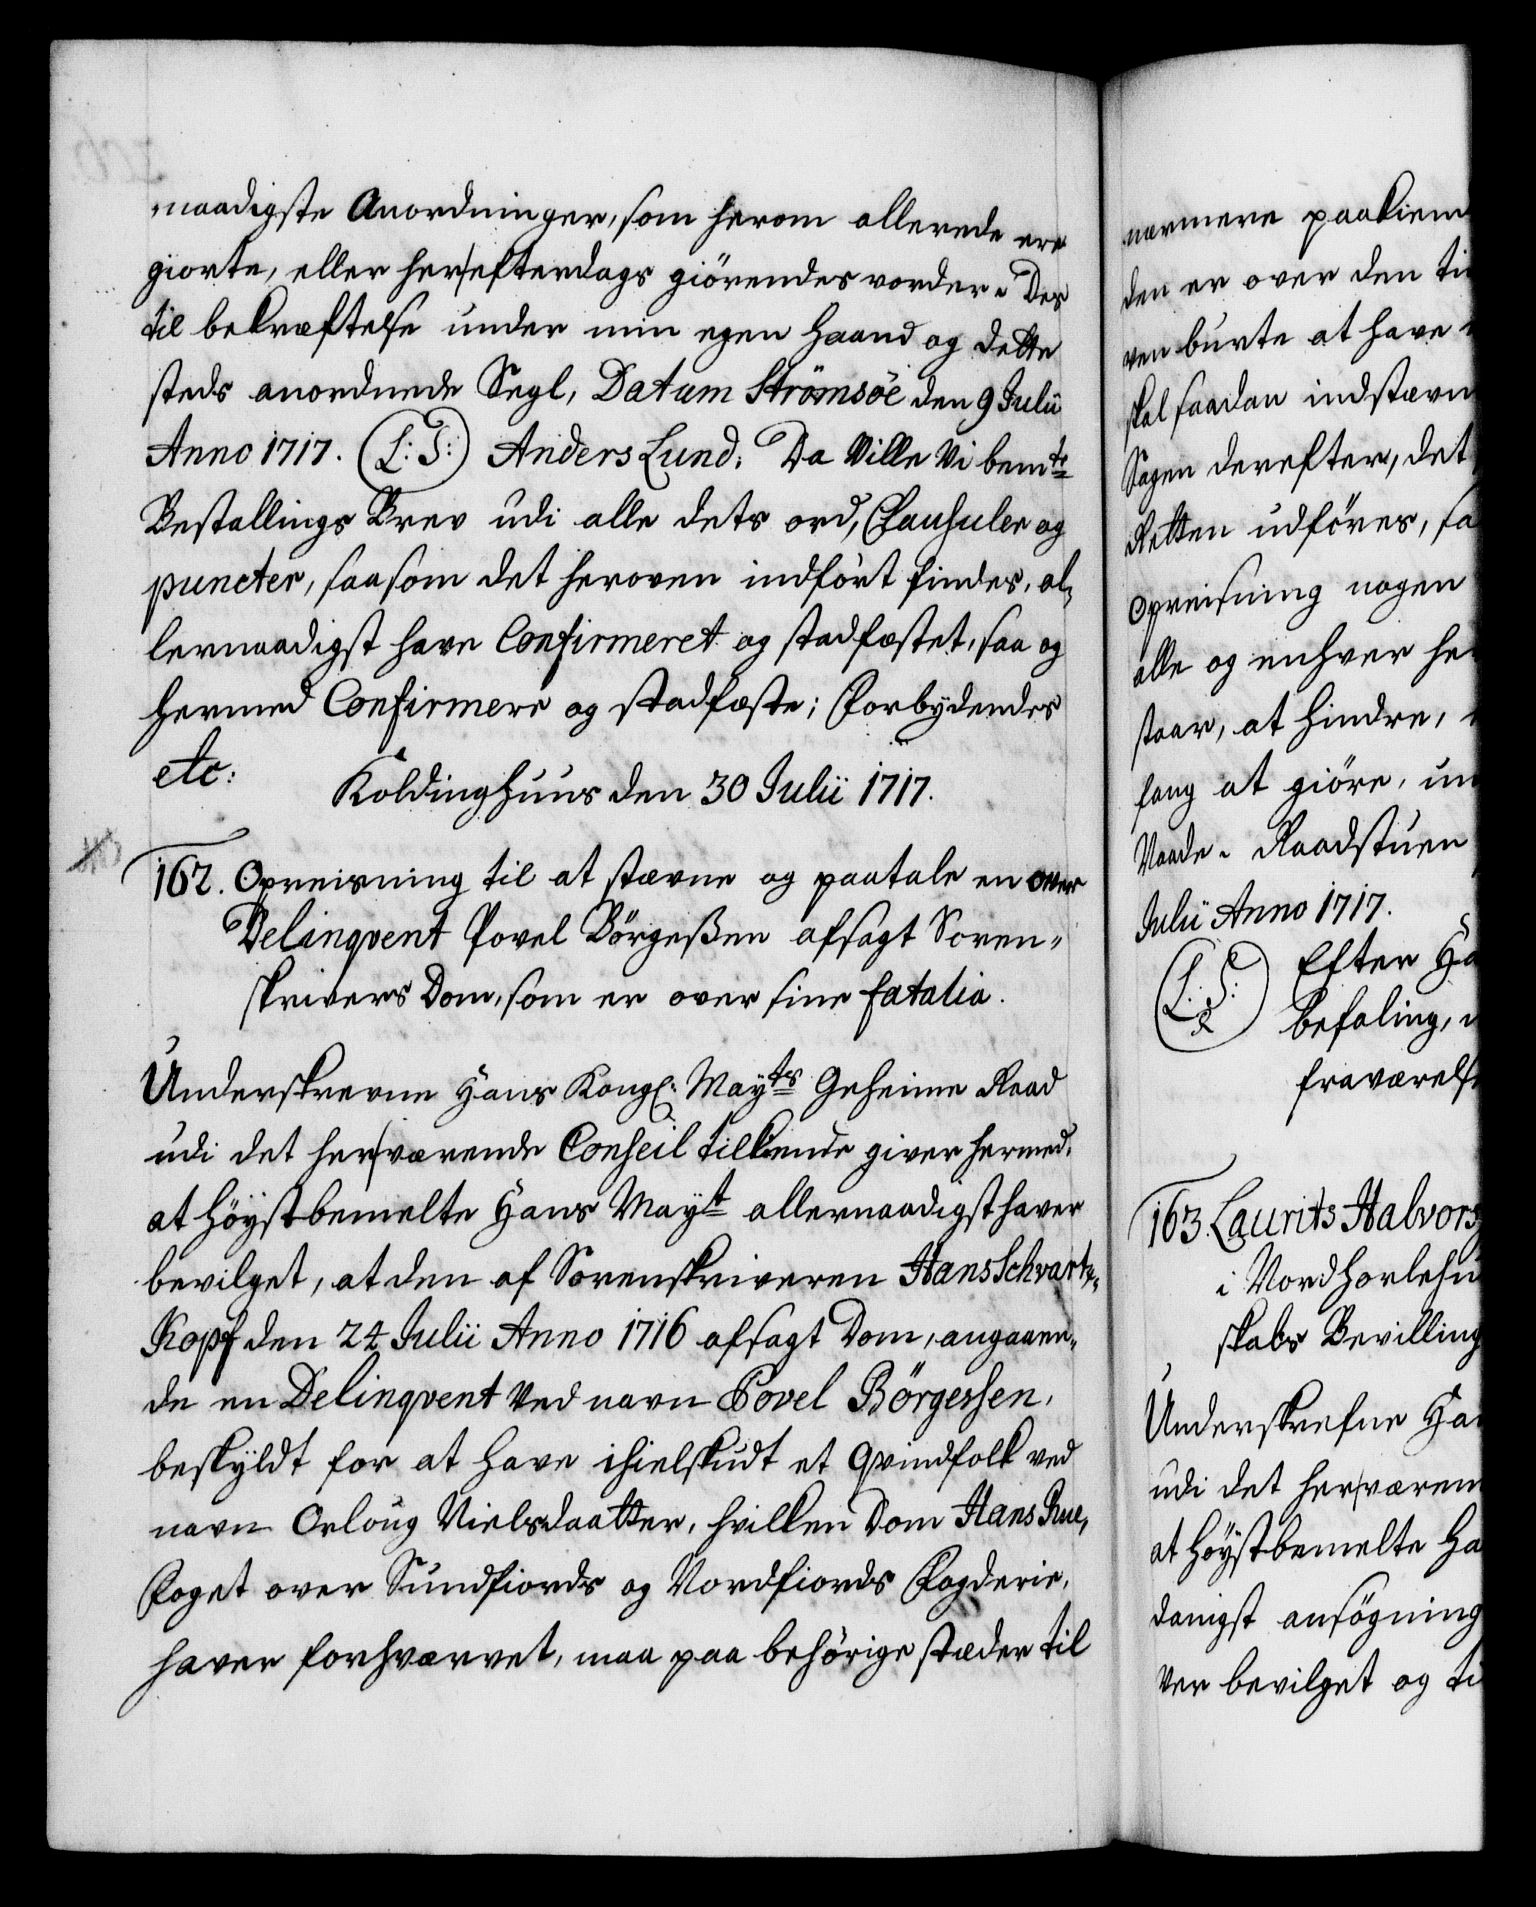 naadigste Anordninger, som herom allerede ere
giorte, eller her efterdags giörendes vorder. Des
til bekræftelse under min egen Haand og dette
steds anordnede Segl, Datum Strömsöe den 9 Julii
Anno 1717. (L: S:) Anders Lund: Da Ville Vi bemte
Bestallings Brev udi alle dets ord, Clausuler og
puncter, saasom det heroven indfört findes, al-
lernaadigst have Confirmeret og stadfæstet, saa og
hermed Confirmere og stadfæste; Forbydendes
etc: Koldinghuus den 30 Julii 1717.
162. Opreisning til at stævne og paatale en over
Delinqvent Povel Börgeßen afsagt Soren-
skrivers Dom, som er over sine fatalia.
Underskrevne Hans Kongl: Mayts Geheime Raad
udi det her værende Conseil tilkiende giver hermed,
at Höystbemelte Hans Mayt allernaadigst haver
bevilget, at den af Sorenskriveren Hans Schvarte-
Kopf den 24 Julii Anno 1716 afsagt Dom, angaaen-
de en Delinqvent ved navn Povel Börgessen,
beskyldt for at have ihielskudt et Qvindfolk ved
navn Orloug Nielsdaatter, hvilken Dom Hans Rue,
Foget over Sundfiords og Nordfiords Fogderie,
haver forhværvet, maa paa behörige stæder til
nærmere paakiem
den er over den ti
ven burte at have
skal saadan indstævn
Sagen derefter, det
Retten udföres, sa
opreisning nogen
alle og enhver he
staar, at hindre,
fang at giöre, un
Naade. Raadstuen
Julii Anno 1717.
(L: S:) Efter Ha
befaling,
fraværelse
163. Laurits Halvors
i Nordhorlehn
skabs Bevilling
Underskrefne Ha
udi det her væren
at Höystbemelte Ha
danigst ansögning
ver bevilget og ti